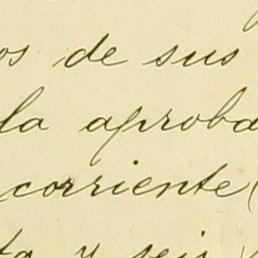 os de sus
la aproba
corriente (
ta y seis